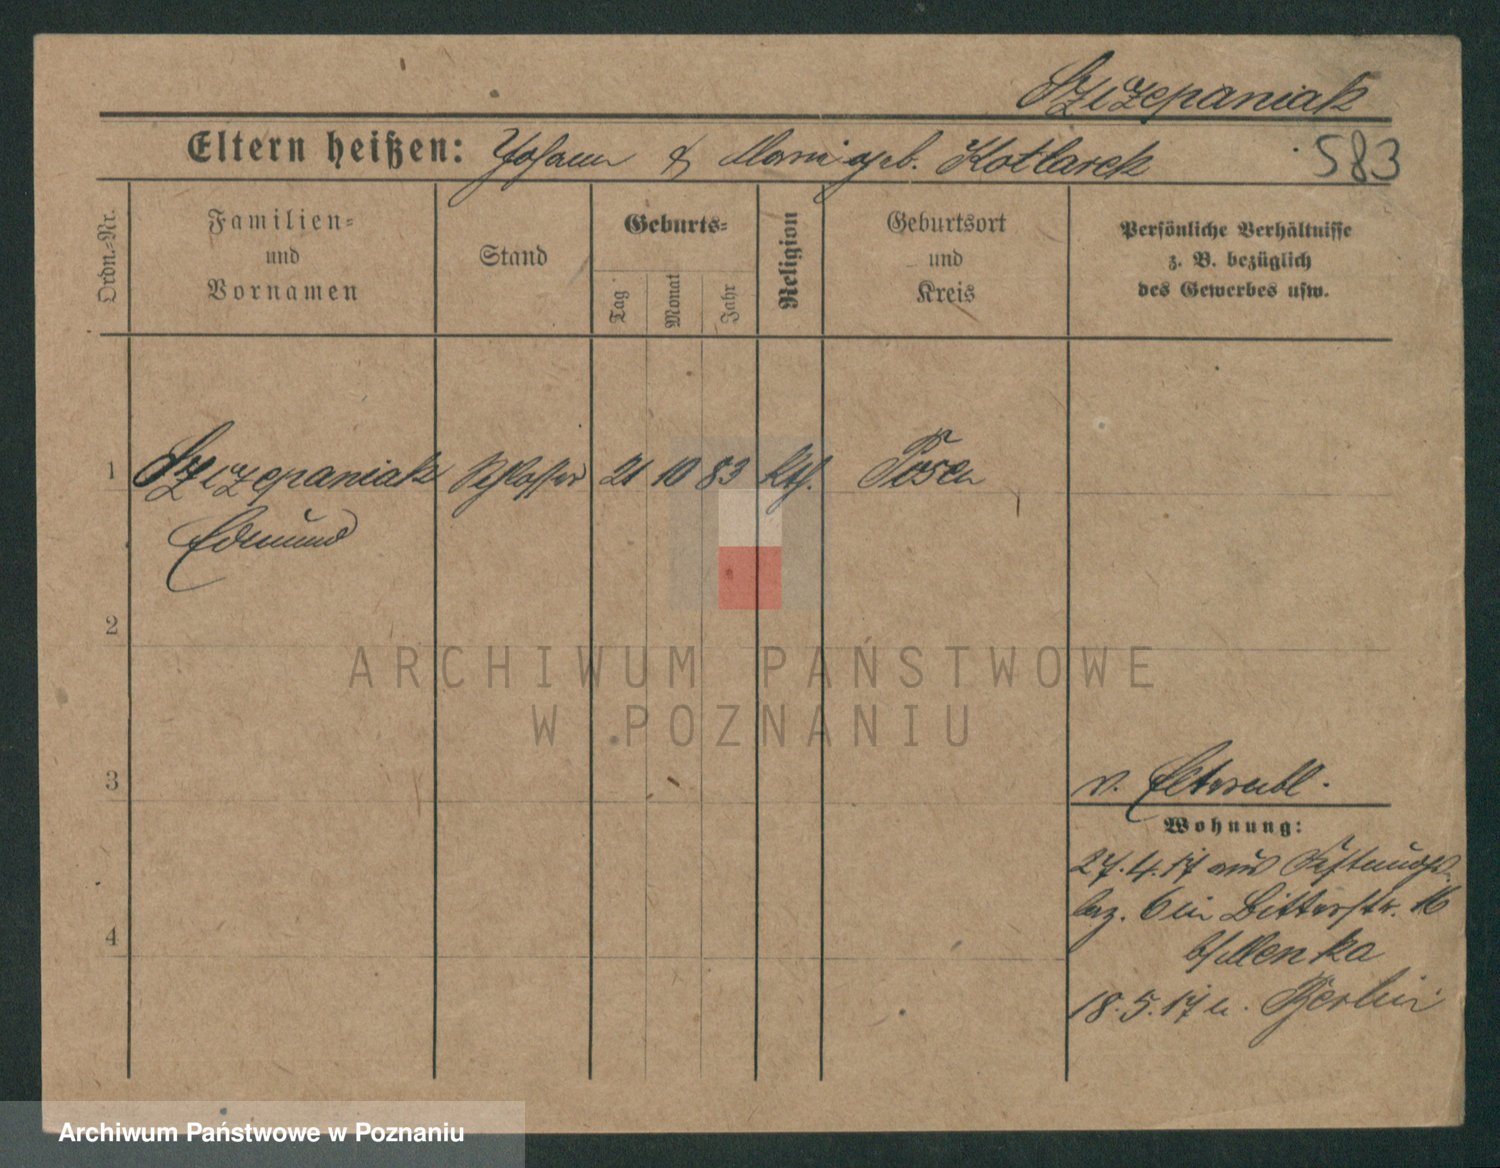 Szczepaniak
Eltern heißen: Johann & Marie geb. Kotlarek
583
Ordn.-Nr.
Familien-
und
Vornamen
Stand
Geburts-
Tag
Monat
Jahr
Religion
Geburtsort
und
Kreis
Persönliche Verhältnisse
z. B. bezüglich
des Gewerbes usw.
1 Szczepaniak Schlosser 21 10 83 kth. Posen
Edmund
2
ARCHIWUM PAŃSTWOWE
W POZNANIU
3
v.
Wohnung:
27.4.17 aus
6 in Bitterstr. 16
b/ Menka
18.5.17 n. Berlin
4
Archiwum Państwowe w Poznaniu